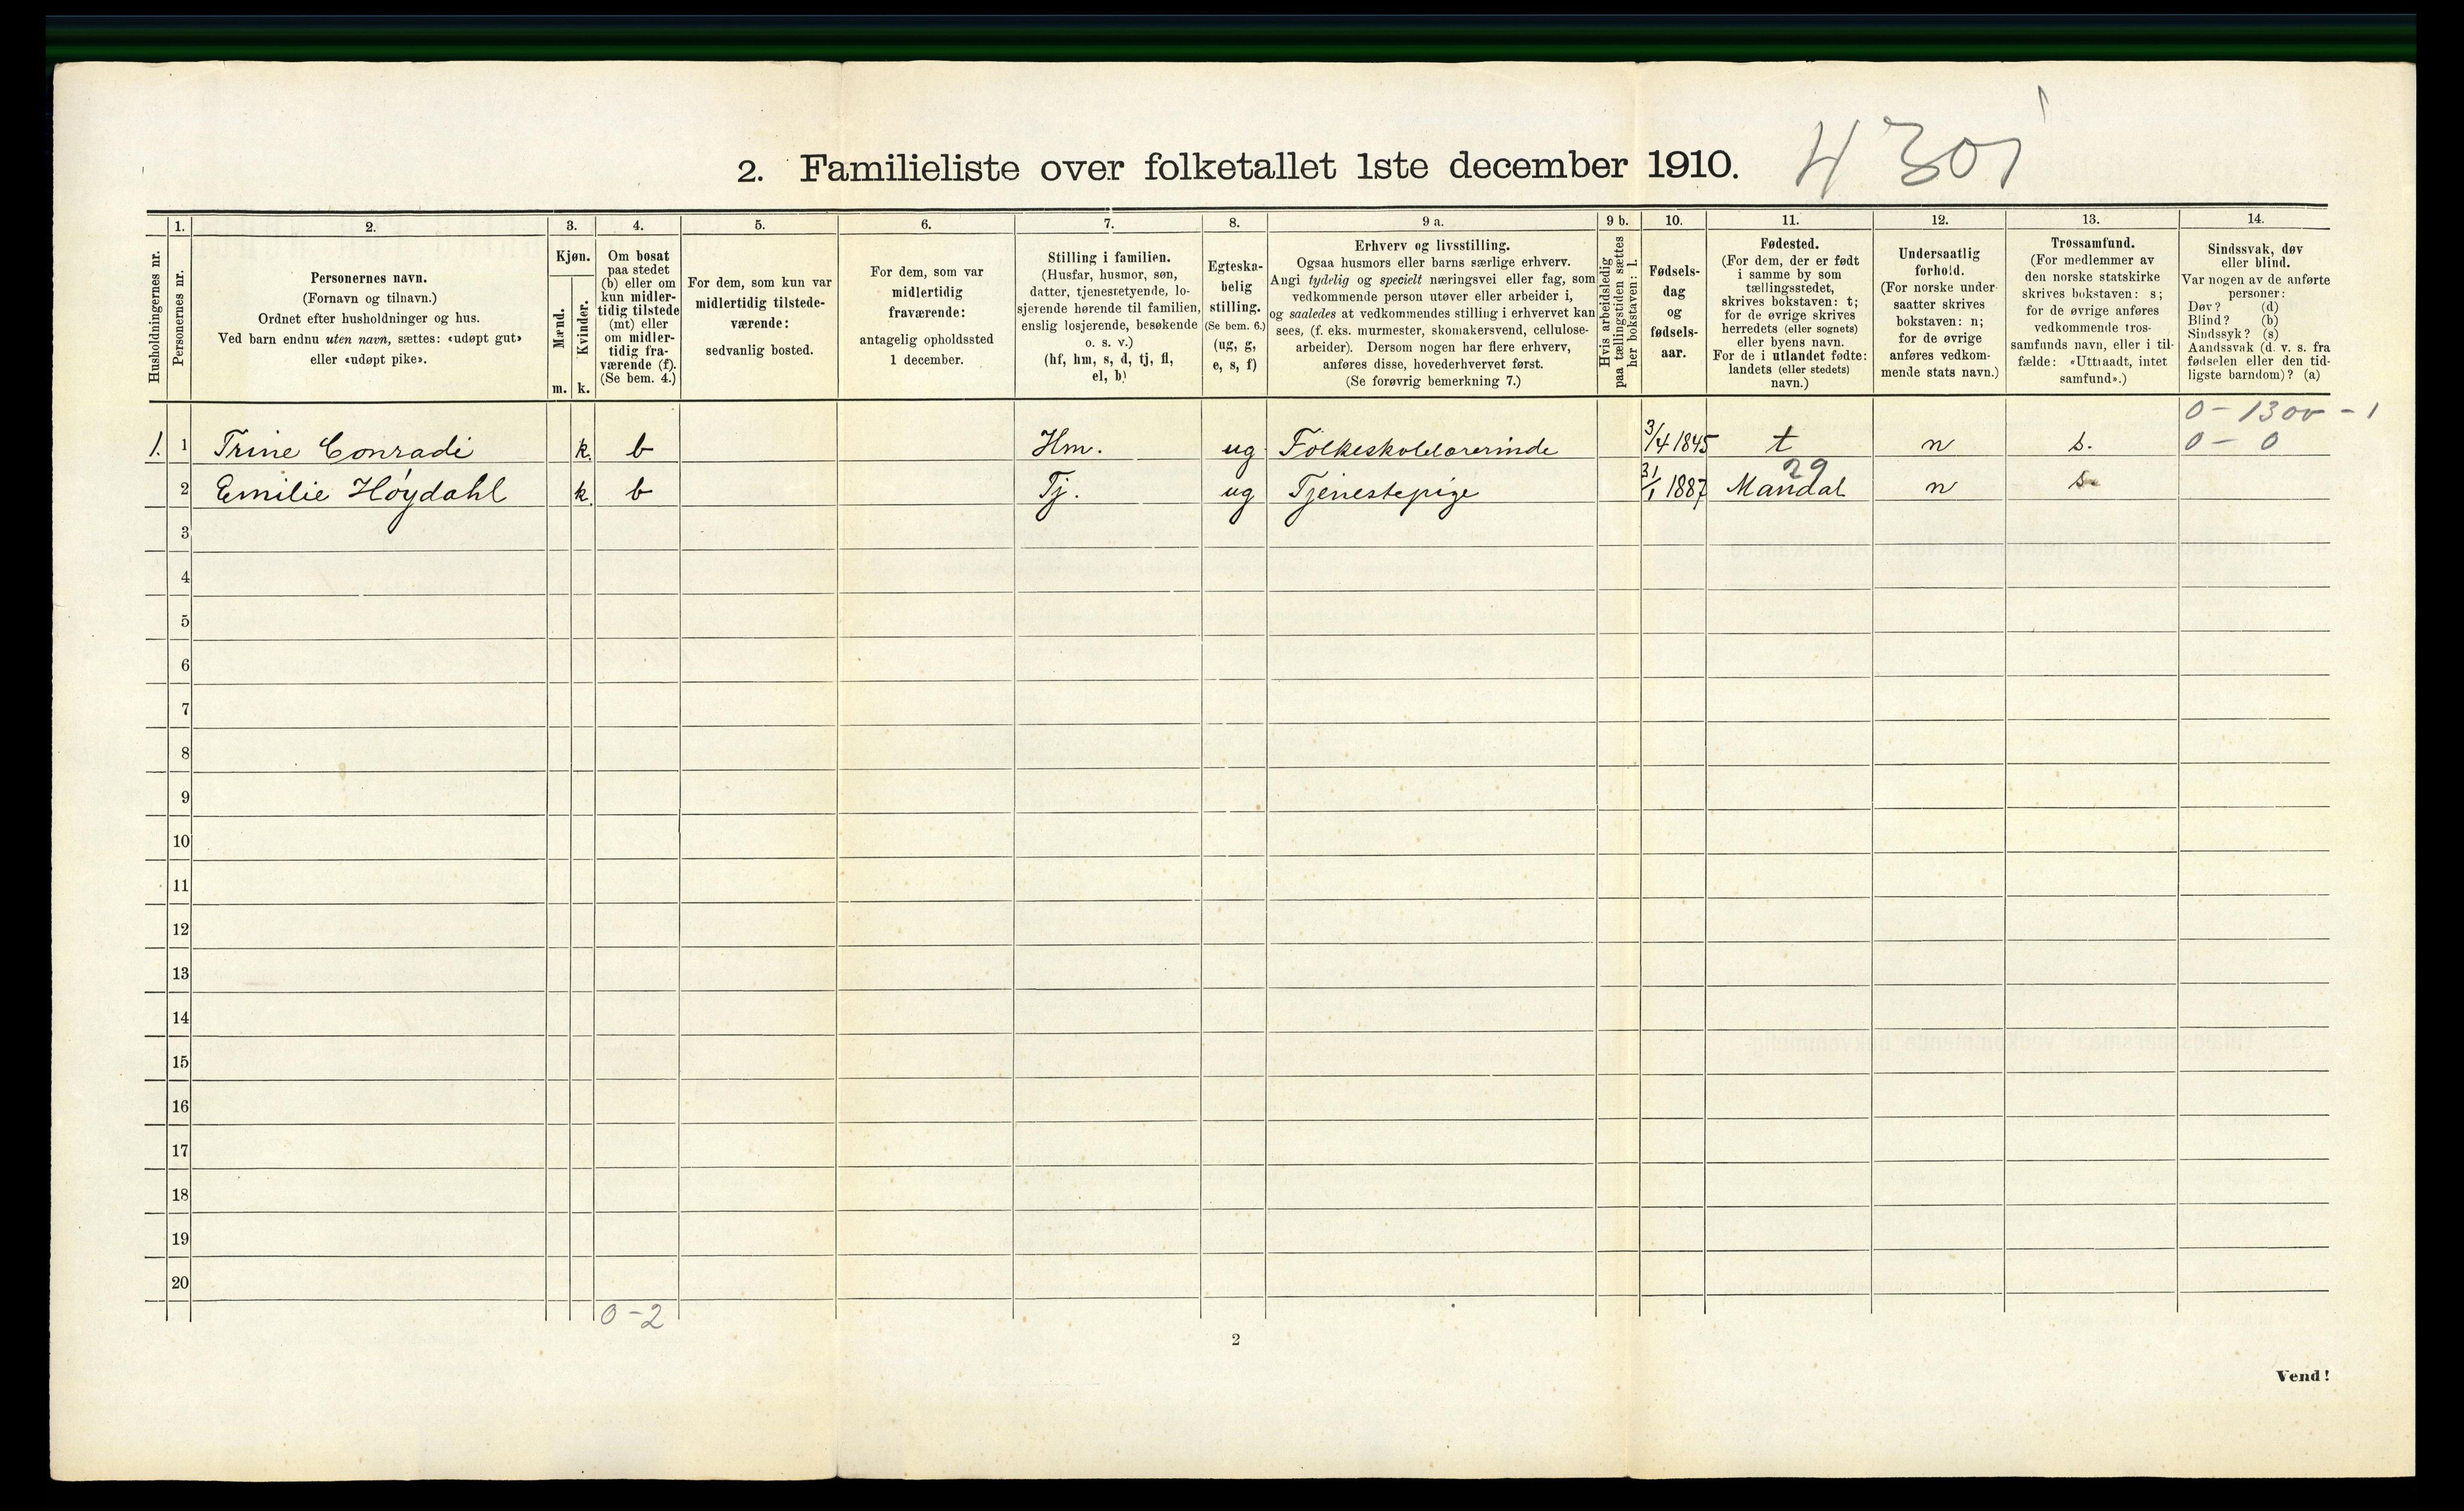 4 301
2. Familieliste over folketallet 1ste december 1910.
Husholdningernes nr.
1.
Personernes nr.
2.
Personernes navn.
(Fornavn og tilnavn.)
Ordnet efter husholdninger og hus.
Ved barn endnu uten navn, sættes: «udøpt gut»
eller «udøpt pike».
3.
Kjøn.
Mænd.
m.
Kvinder.
k.
4.
Om bosat
paa stedet
(b) eller om
kun midler-
tidig tilstede
(mt) eller
om midler-
tidig fra-
værende (f).
(Se bem. 4.)
5.
For dem, som kun var
midlertidig tilstede-
værende:
sedvanlig bosted.
6.
For dem, som var
midlertidig
fraværende:
antagelig opholdssted
1 december.
7.
Stilling i familien.
(Husfar, husmor, søn,
datter, tjenestetyende, lo-
sjerende hørende til familien,
enslig losjerende, besøkende
o. s. v.)
(hf, hm, s, d, tj, fl,
el, b)
8.
Egteska-
belig
stilling.
(Se bem. 6.)
(ug, g,
e, s, f)
9 a.
Erhverv og livsstilling.
Ogsaa husmors eller barns særlige erhverv.
Angi tydelig og specielt næringsvei eller fag, som
vedkommende person utøver eller arbeider i,
og saaledes at vedkommendes stilling i erhvervet kan
sees, (f. eks. murmester, skomakersvend, cellulose-
arbeider). Dersom nogen har flere erhverv,
anføres disse, hovederhvervet først.
(Se forøvrig bemerkning 7.)
9 b.
Hvis arbeidsledig
paa tællingstiden sættes
her bokstaven: l.
10.
Fødsels-
dag
og
fødsels-
aar.
11.
Fødested.
(For dem, der er født
i samme by som
tællingsstedet,
skrives bokstaven: t;
for de øvrige skrives
herredets (eller sognets)
eller byens navn.
For de i utlandet fødte:
landets (eller stedets)
navn.)
12.
Undersaatlig
forhold.
(For norske under-
saatter skrives
bokstaven: n;
for de øvrige
anføres vedkom-
mende stats navn.)
13.
Trossamfund.
(For medlemmer av
den norske statskirke
skrives bokstaven: s;
for de øvrige anføres
vedkommende tros-
samfunds navn, eller i til-
fælde: «Uttraadt, intet
samfund».)
14.
Sindssvak, døv
eller blind.
Var nogen av de anførte
personer:
Døv? (d)
Blind? (b)
Sindssyk? (s)
Aandssvak (d. v. s. fra
fødselen eller den tid-
ligste barndom)? (a)
0 - 1300 - 1
1. 1 Trine Conradi k. b Hm. ug Folkeskolelærerinde 3/4 1845 t n s. 0 - 0
29
2 Emilie Høydahl k. b Tj. ug Tjenestepige 31/1 1887 Mandal n s.
3
4
5
6
7
8
9
10
11
12
13
14
15
16
17
18
19
20
0 - 2
2
Vend!